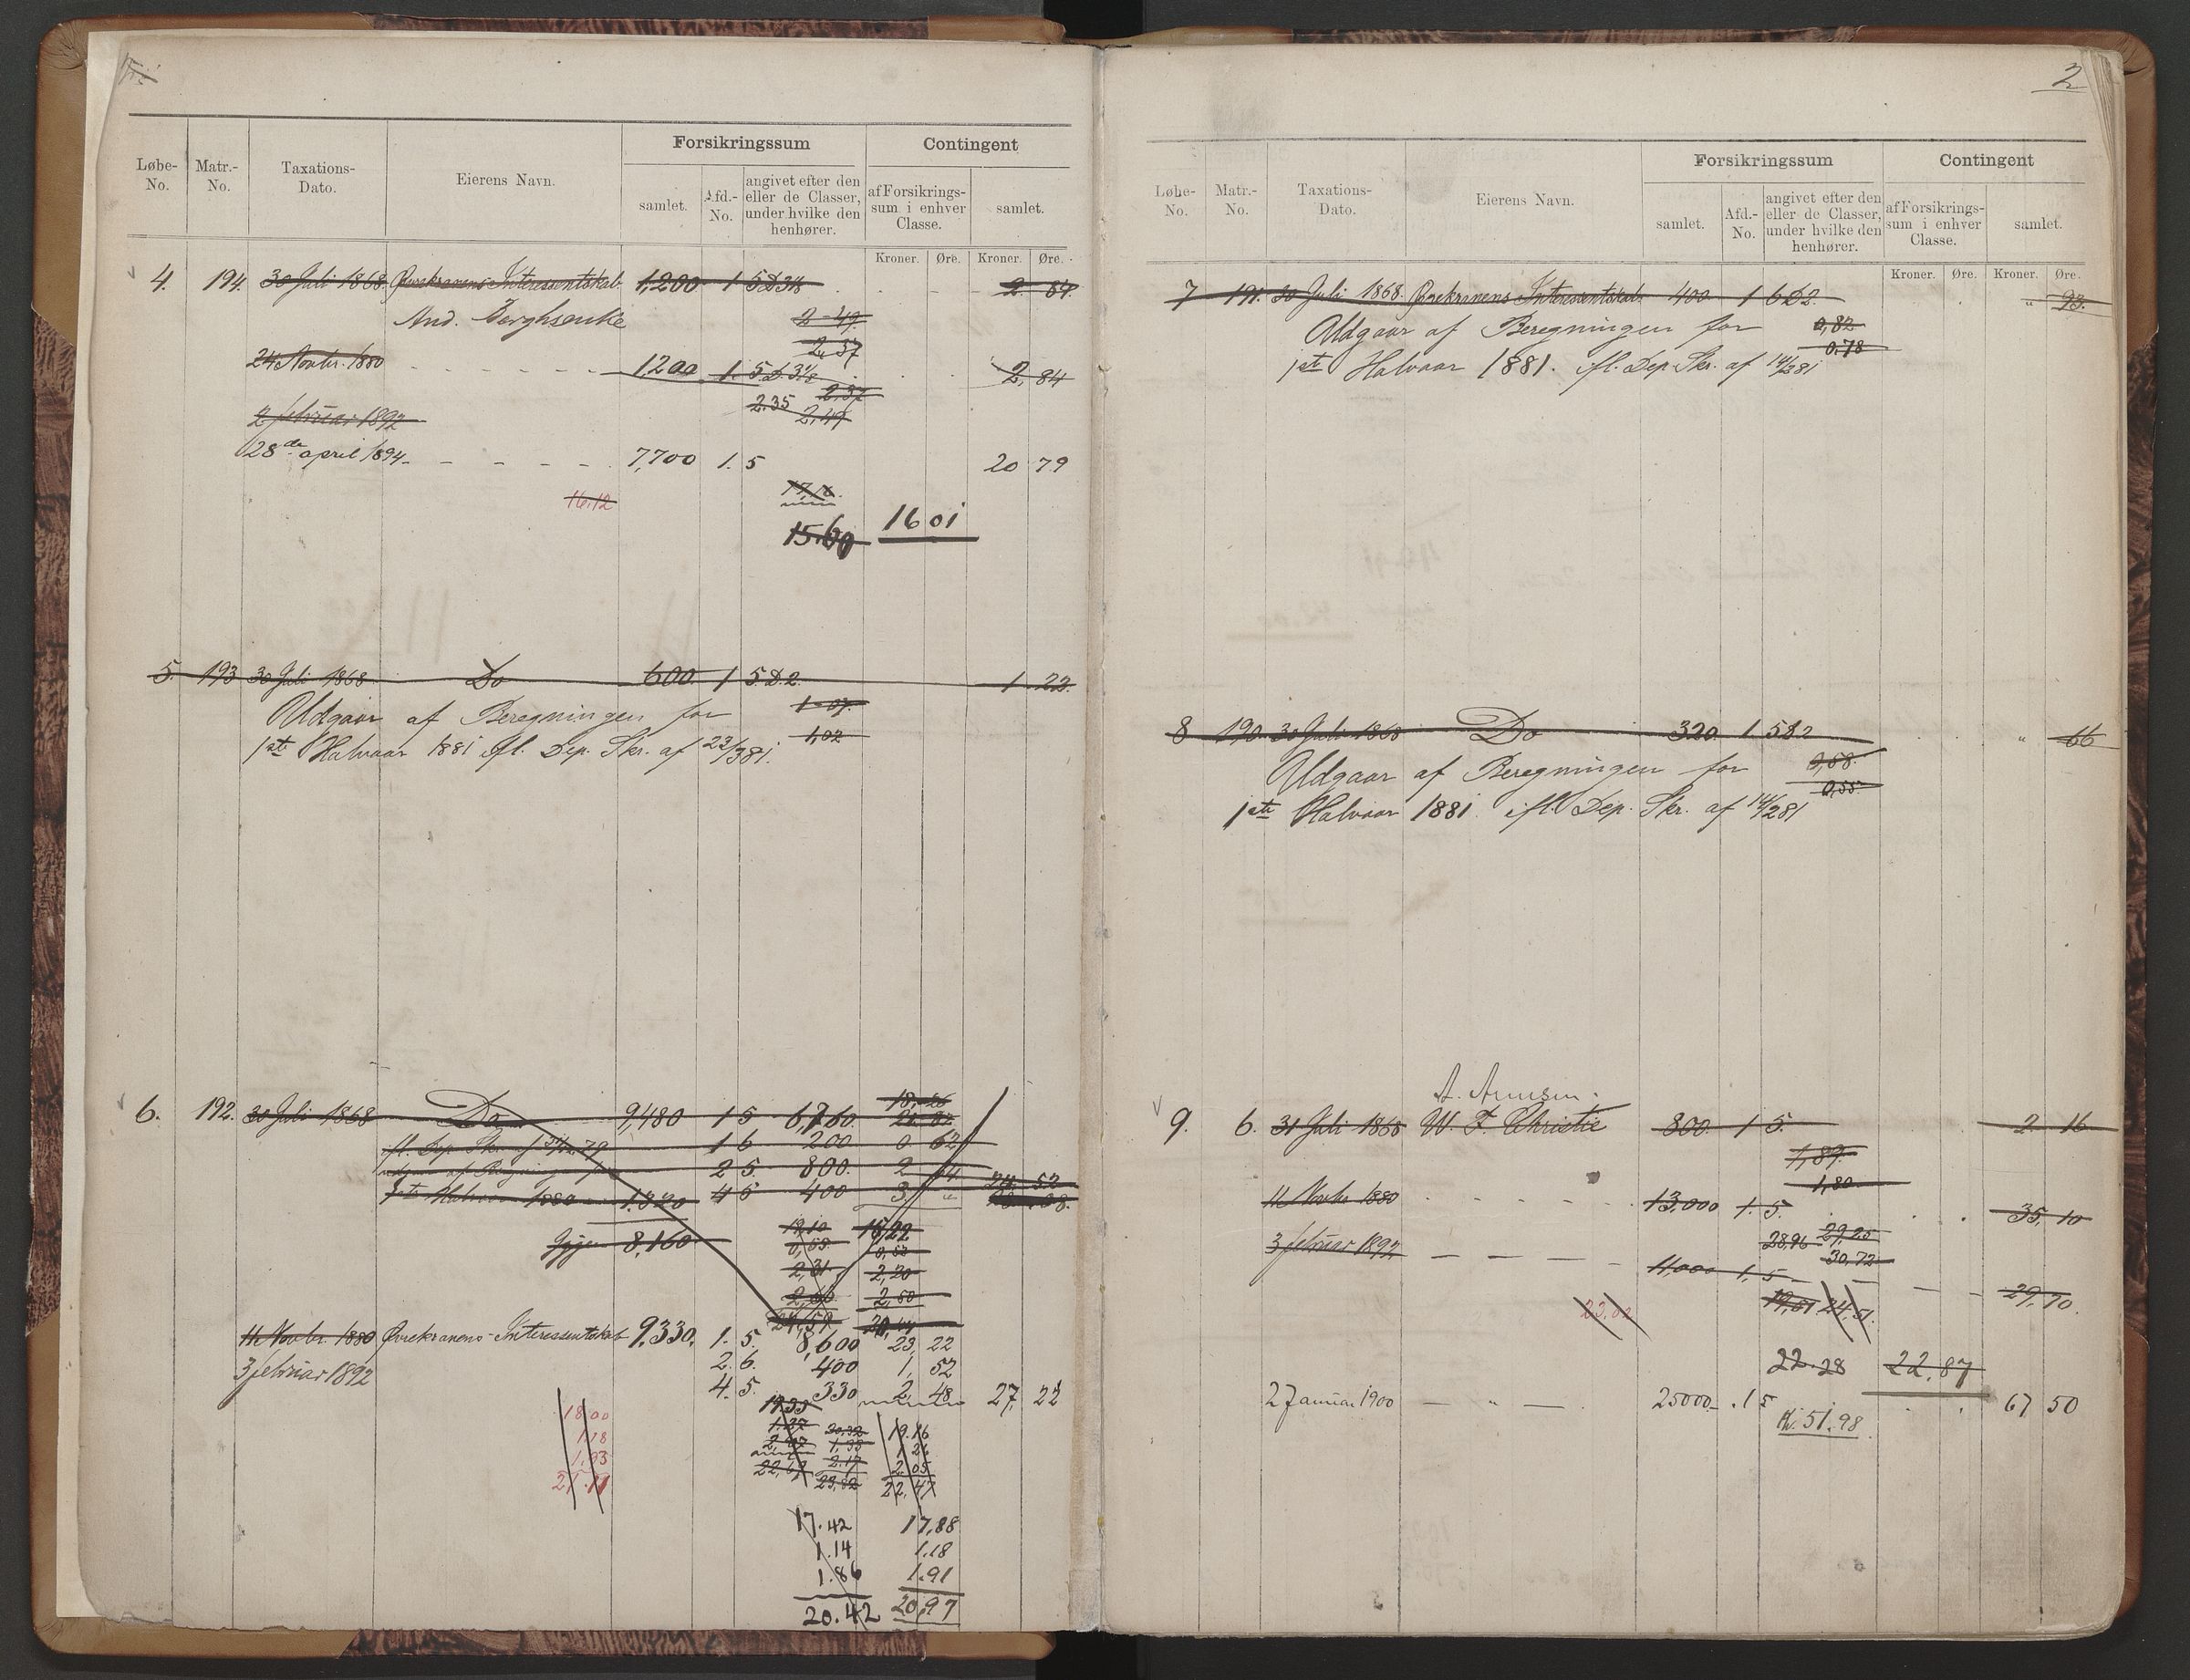 Løbe-No. Matr.-No. Taxations-Dato. Eierens Navn. Forsikringssum samlet. Afd.-No. angivet efter den eller de Classer, under hvilke den henhører. Contingent af Forsikringssum i enhver Classe. samlet.
Kroner. Øre. Kroner. Øre.
4. 194. 30 Juli 1868. Øvrekranens Interessentskab 1,200 1 5 D 3⅛ 2. 84.
And. 2-49.
2,37
24 Novbr. 1880 1200 1. 5. D. 3⅛ 2, 84
2.35 2.37
2,49
2 februar 1892
28de april 1894 7,700 1. 5 20 79
16.12
15.60 16 01
5. 193 30 Juli 1868 Do 600. 1 5. D. 2. 1 22.
Udgaar af Beregningen for 1-07.
1ste Halvaar 1881 ifl. Dep. Skr. af 23/3 81. 1,02
6. 192. 30 Juli 1868 Do 9,480 1 5 6,760.
ifl. Dep. Skr. 1 6 200 0 62
udgaar af Beregningen for 2 5 800
1ste Halvaar 1880 1.320 4 5 400 3. 24. 52
8,160
2,31. 2,20
2,50
11 Novbr. 1880 Øvrekranens Interessentskab 9,330. 1. 5. 8,600 23, 22
3 februar 1892 2. 6. 400 1, 52
4. 5. 330 2, 48 27, 22
18.00
1.18
1,93
21.11
19.16
1 26
2.05
22.47
23,82
17.42 17,88
1.14 1.18
1.86 1.91
20.42 20,97
2
Løbe-No. Matr.-No. Taxations-Dato. Eierens Navn. Forsikringssum samlet. Afd.-No. angivet efter den eller de Classer, under hvilke den henhører. Contingent af Forsikringssum i enhver Classe. samlet.
Kroner. Øre. Kroner. Øre.
7 191. 30 Juli 1868. Øvrekranens Interessentskab 400. 1 6 D 2. " 93.
Udgaar af Beregningen for 0,82
0.78
1ste Halvaar 1881. ifl. Dep. Skr. af 14/2 81
8 190. 30 Juli 1868 Do 320. 1 5 D 2 " 66
Udgaar af Beregningen for 0,58.
0,55.
1ste Halvaar 1881. ifl. Dep. Skr. af 14/2 81
A. Arnesen.
9. 6. 31 Juli 1868 W. F. Christie 800. 1 5. 2. 16
1,89.
1,80
11 Novbr 1880 13,000 1. 5. 35, 10
28,96 29,25
30,72
3 februar 1892 11,000 1, 5 29, 70.
23,02 24,51.
22.28 22,87
2 Januar 1900 — " — 25000 1 5 67 50
Kr. 51.98